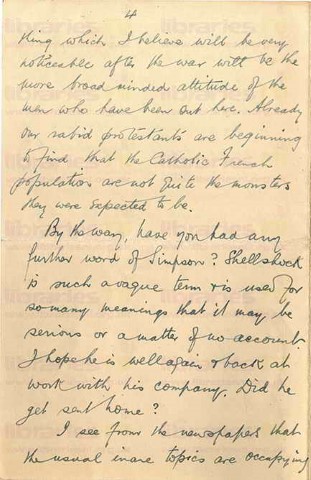 4
thing which I believe will be very
noticeable after the war will be the
more broad minded attitude of the
men who have been out here. Already
our rabid protestants are beginning
to find that the Catholic French
population are not quite the monsters
they were expected to be.
By the way, have you had any
further word of Simpson? Shellshock
is such a vague term & is used for
so many meanings that it may be
serious or a matter of no account.
I hope he is well again & back at
work with his company. Did he
get sent home?
I see from the newspapers that
the usual inane topics are occupying